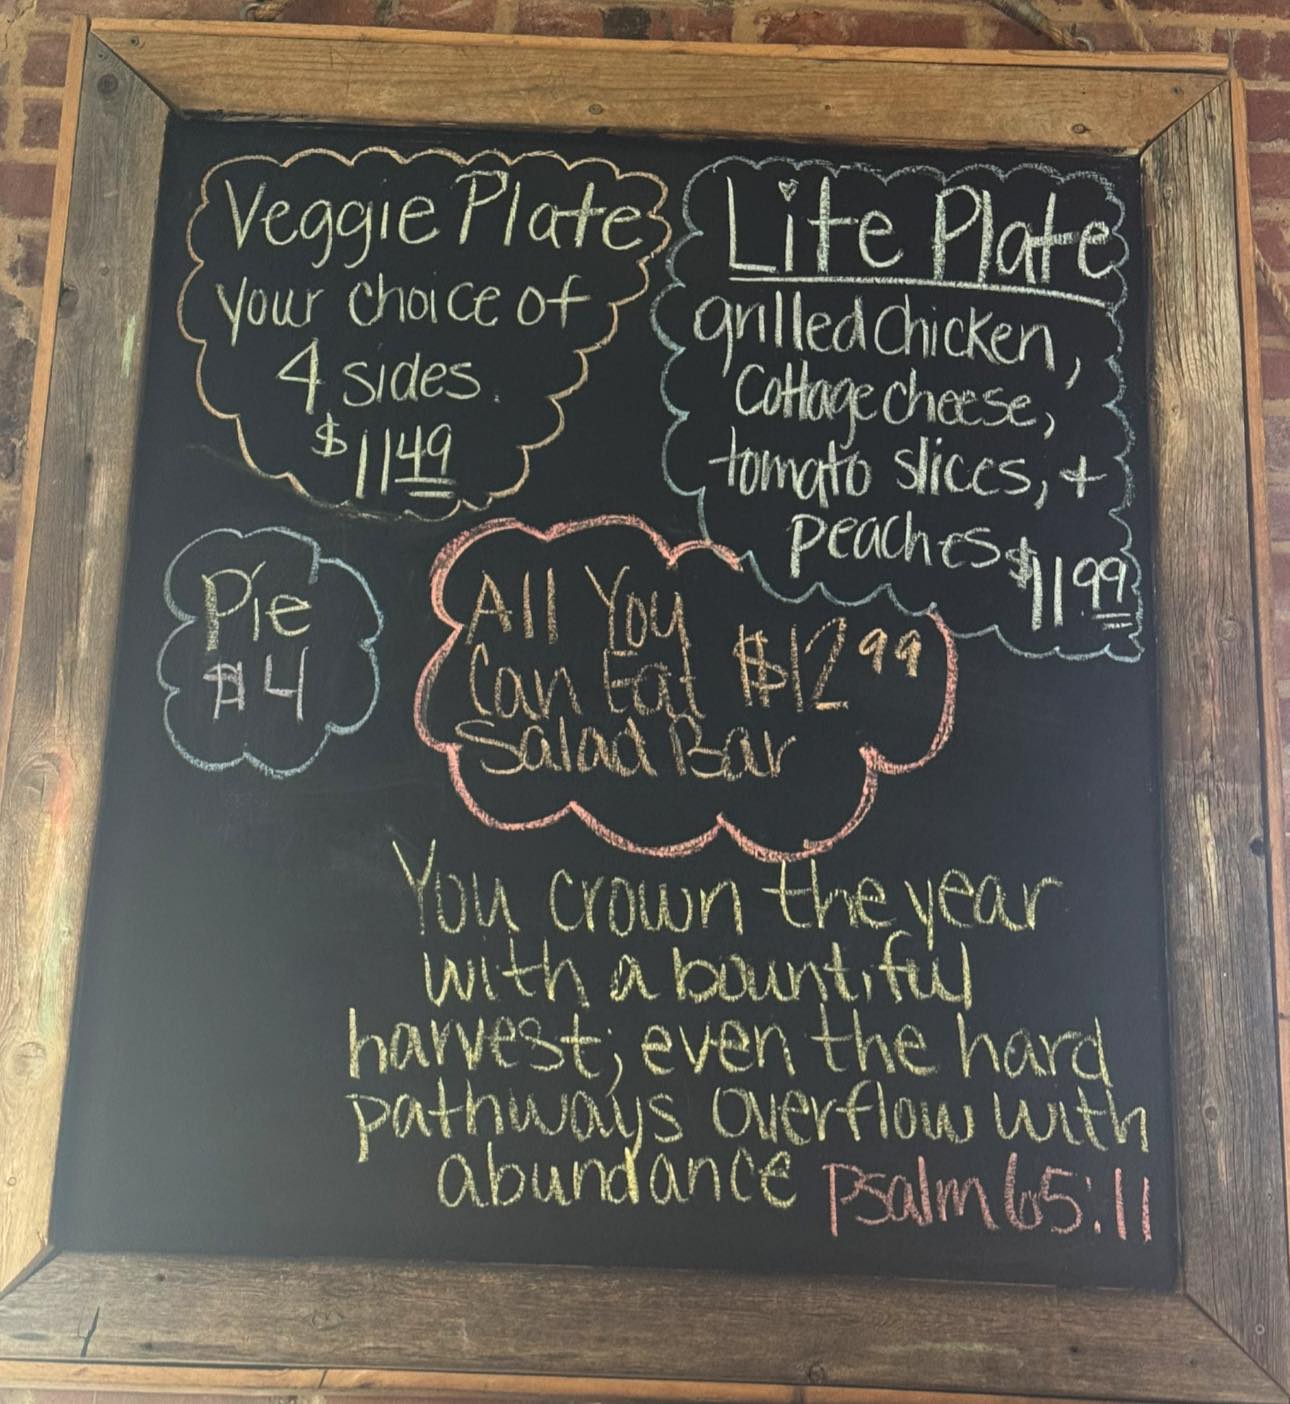 Veggie Plate
your choice of
4 sides.
$11 49
Lite Plate
grilled chicken,
Cottage cheese,
tomato slices, +
peaches $11 99
Pie
$4
All You
Can Eat $12 99
Salad Bar
You crown the year
with a bountiful
harvest; even the hard
pathways overflow with
abundance Psalm 65:11